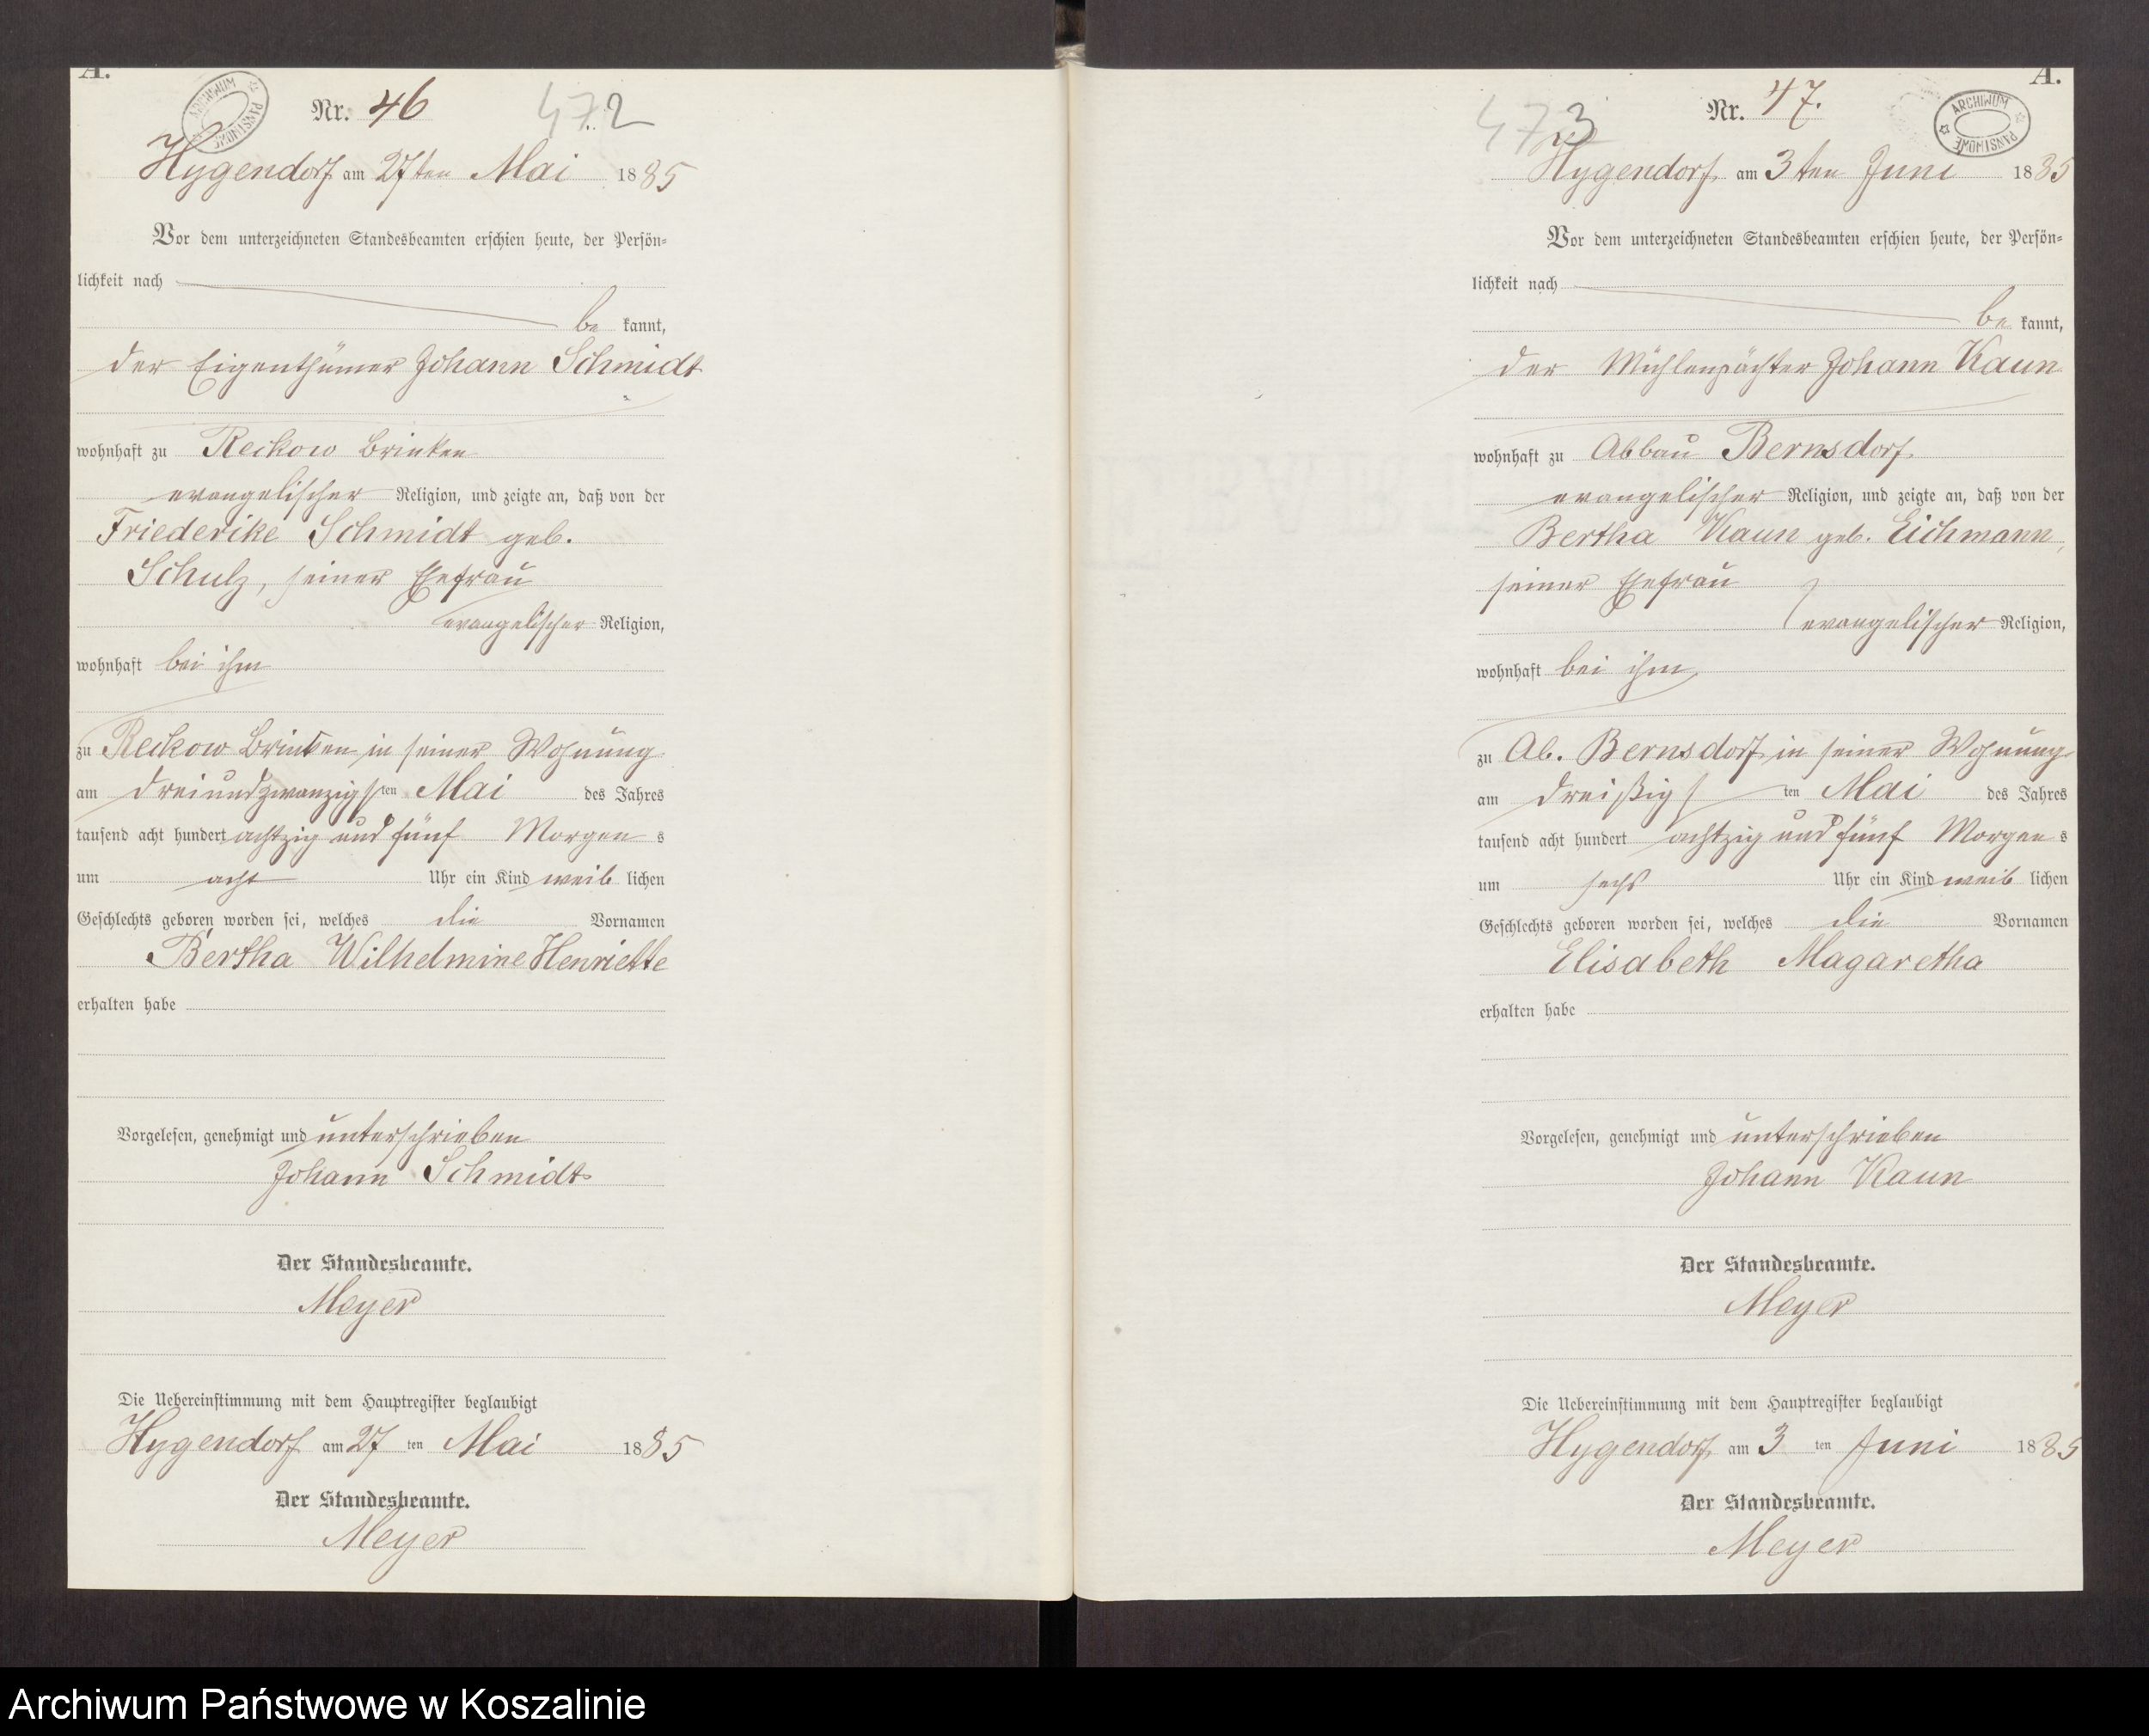 A.
ARCHIWUM PAŃSTWOWE
Nr. 46
472
Hygendorf am 27ten Mai 1885
Vor dem unterzeichneten Standesbeamten erschien heute, der Persön-
lichkeit nach
be kannt,
der Eigenthümer Johann Schmidt
wohnhaft zu Reckow Brinken
evangelischer Religion, und zeigte an, daß von der
Friederike Schmidt geb.
Schulz, seiner Ehefrau
evangelischer Religion,
wohnhaft bei ihm
zu Reckow Brinken in seiner Wohnung
am dreiundzwanzigsten Mai des Jahres
tausend acht hundert achtzig und fünf Morgens
um acht Uhr ein Kind weib lichen
Geschlechts geboren worden sei, welches die Vornamen
Bertha Wilhelmine Henriette
erhalten habe
Vorgelesen, genehmigt und unterschrieben
Johann Schmidt
Der Standesbeamte.
Meyer
Die Uebereinstimmung mit dem Hauptregister beglaubigt
Hygendorf am 27 ten Mai 1885
Der Standesbeamte.
Meyer
A.
473
Nr. 47.
ARCHIWUM PAŃSTWOWE
Hygendorf, am 3ten Juni 1885
Vor dem unterzeichneten Standesbeamten erschien heute, der Persön-
lichkeit nach
be kannt,
der Mühlenpächter Johann Kaun
wohnhaft zu Abbau Bernsdorf,
evangelischer Religion, und zeigte an, daß von der
Bertha Kaun geb. Eichmann,
seiner Ehefrau
evangelischer Religion,
wohnhaft bei ihm,
zu Ab. Bernsdorf, in seiner Wohnung
am dreißigsten Mai des Jahres
tausend acht hundert achtzig und fünf Morgens
um sechs Uhr ein Kind weib lichen
Geschlechts geboren worden sei, welches die Vornamen
Elisabeth Magaretha
erhalten habe
Vorgelesen, genehmigt und unterschrieben
Johann Kaun
Der Standesbeamte.
Meyer
Die Uebereinstimmung mit dem Hauptregister beglaubigt
Hygendorf, am 3 ten Juni 1885
Der Standesbeamte.
Meyer
Archiwum Państwowe w Koszalinie